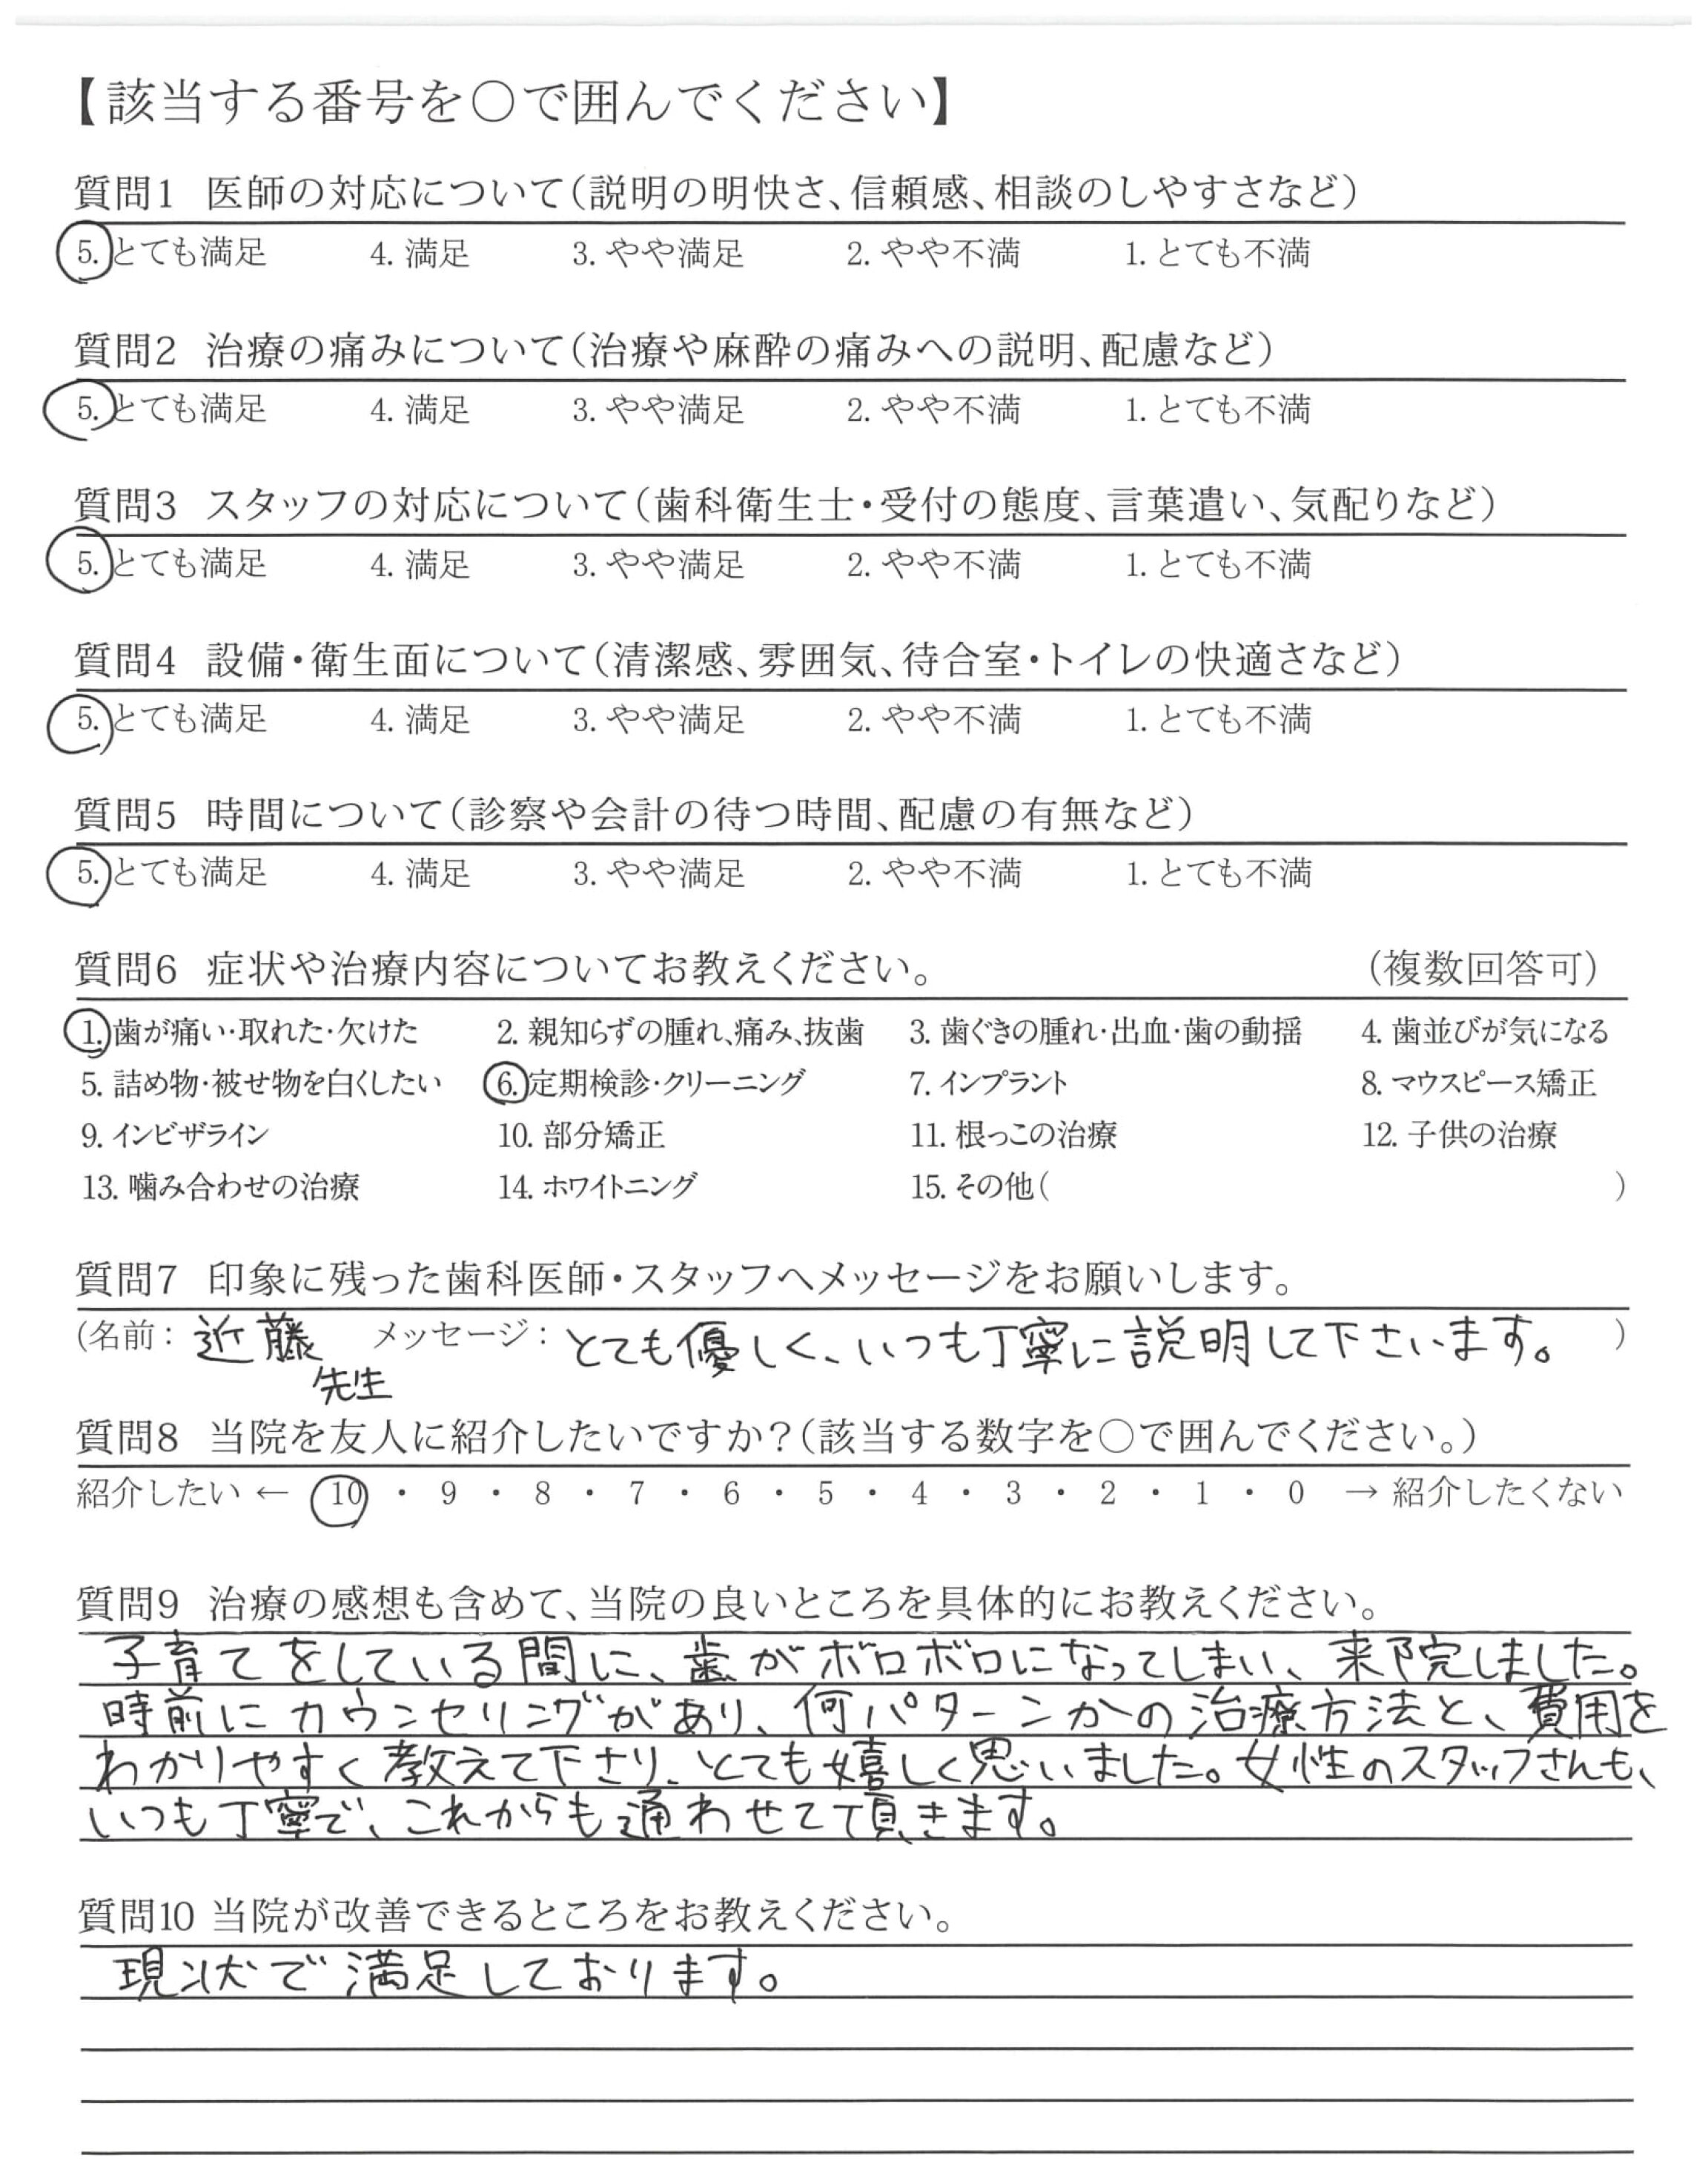 【該当する番号を○で囲んでください】
質問1 医師の対応について(説明の明快さ、信頼感、相談のしやすさなど)
5. とても満足 4. 満足 3. やや満足 2. やや不満 1. とても不満
質問2 治療の痛みについて(治療や麻酔の痛みへの説明、配慮など)
5. とても満足 4. 満足 3. やや満足 2. やや不満 1. とても不満
質問3 スタッフの対応について(歯科衛生士・受付の態度、言葉遣い、気配りなど)
5. とても満足 4. 満足 3. やや満足 2. やや不満 1. とても不満
質問4 設備・衛生面について(清潔感、雰囲気、待合室・トイレの快適さなど)
5. とても満足 4. 満足 3. やや満足 2. やや不満 1. とても不満
質問5 時間について(診察や会計の待つ時間、配慮の有無など)
5. とても満足 4. 満足 3. やや満足 2. やや不満 1. とても不満
質問6 症状や治療内容についてお教えください。 (複数回答可)
1. 歯が痛い・取れた・欠けた 2. 親知らずの腫れ、痛み、抜歯 3. 歯ぐきの腫れ・出血・歯の動揺 4. 歯並びが気になる
5. 詰め物・被せ物を白くしたい 6. 定期検診・クリーニング 7. インプラント 8. マウスピース矯正
9. インビザライン 10. 部分矯正 11. 根っこの治療 12. 子供の治療
13. 噛み合わせの治療 14. ホワイトニング 15. その他( )
質問7 印象に残った歯科医師・スタッフへメッセージをお願いします。
(名前: 近藤 メッセージ: とても優しく、いつも丁寧に説明して下さいます。 )
先生
質問8 当院を友人に紹介したいですか?(該当する数字を○で囲んでください。)
紹介したい ← 10 ・ 9 ・ 8 ・ 7 ・ 6 ・ 5 ・ 4 ・ 3 ・ 2 ・ 1 ・ 0 → 紹介したくない
質問9 治療の感想も含めて、当院の良いところを具体的にお教えください。
子育てをしている間に、歯がボロボロになってしまい、来院しました。
時前にカウンセリングがあり、何パターンかの治療方法と、費用を
わかりやすく教えて下さり、とても嬉しく思いました。女性のスタッフさんも、
いつも丁寧で、これからも通わせて頂きます。
質問10 当院が改善できるところをお教えください。
現状で満足しております。